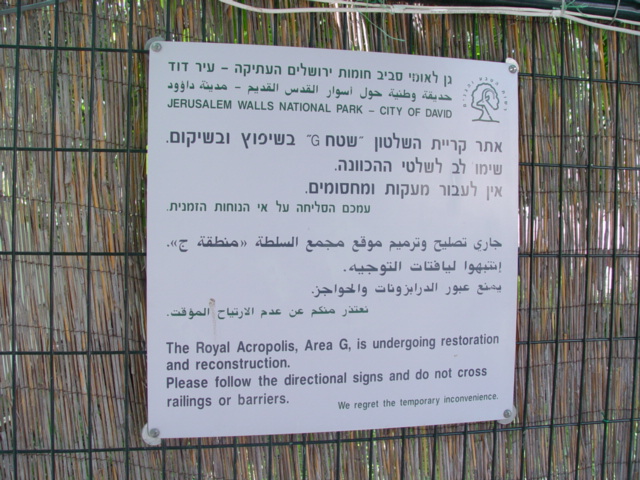 גן לאומי סביב חומות ירושלים העתיקה - עיר דוד
حديقة وطنية حول أسوار القدس القديم - مدينة داؤود
JERUSALEM WALLS NATIONAL PARK - CITY OF DAVID
אתר קריית השלטון "שטח G" בשיפוץ ובשיקום.
שימו לב לשלטי ההכוונה.
אין לעבור מעקות ומחסומים.
עמכם הסליחה על אי הנוחות הזמנית.
جاري تصليح وترميم موقع مجمع السلطة «منطقة ج».
إنتبهوا ليافتات التوجيه.
يمنع عبور الدرابزونات والحواجز.
نعتذر منكم عن عدم الارتياح المؤقت.
The Royal Acropolis, Area G, is undergoing restoration
and reconstruction.
Please follow the directional signs and do not cross
railings or barriers.
We regret the temporary inconvenience.